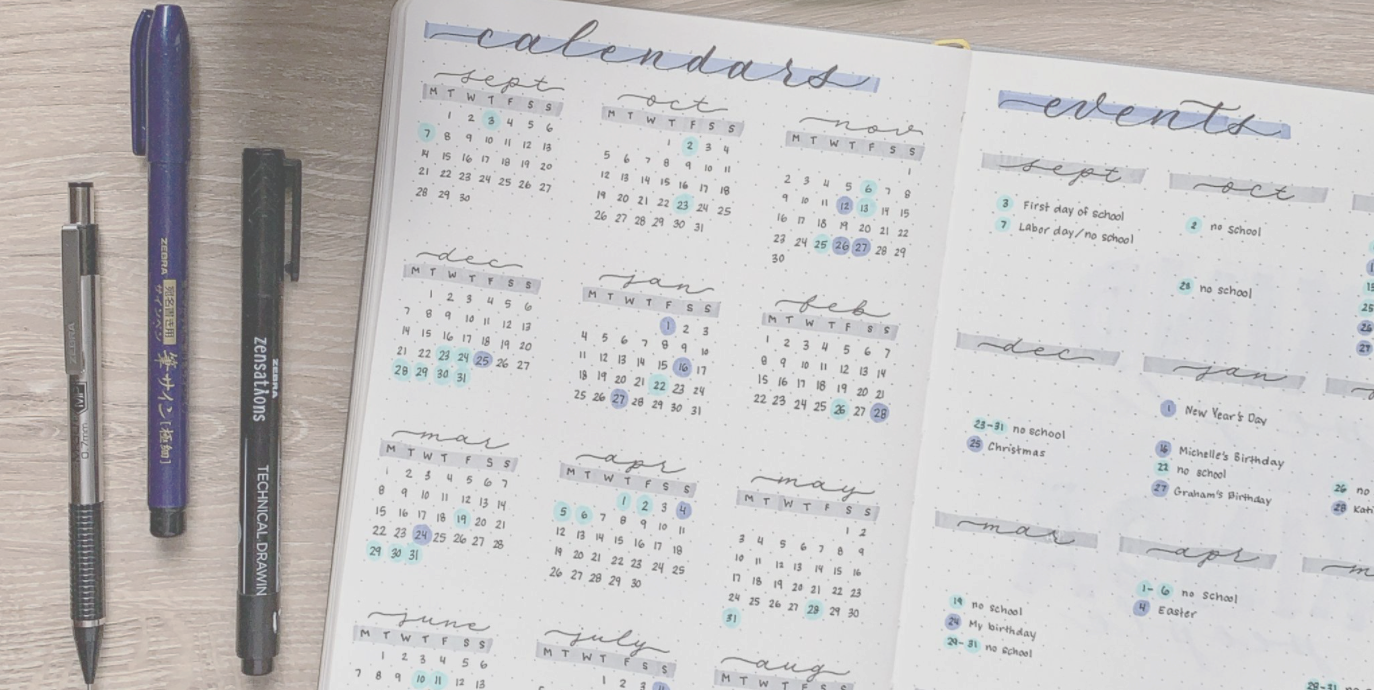 calendars
sept
M T W T F S S
1 2 3 4 5 6
7 8 9 10 11 12 13
14 15 16 17 18 19 20
21 22 23 24 25 26 27
28 29 30
oct
M T W T F S S
1 2 3 4
5 6 7 8 9 10 11
12 13 14 15 16 17 18
19 20 21 22 23 24 25
26 27 28 29 30 31
nov
M T W T F S S
1
2 3 4 5 6 7 8
9 10 11 12 13 14 15
16 17 18 19 20 21 22
23 24 25 26 27 28 29
30
dec
M T W T F S S
1 2 3 4 5 6
7 8 9 10 11 12 13
14 15 16 17 18 19 20
21 22 23 24 25 26 27
28 29 30 31
jan
M T W T F S S
1 2 3
4 5 6 7 8 9 10
11 12 13 14 15 16 17
18 19 20 21 22 23 24
25 26 27 28 29 30 31
feb
M T W T F S S
1 2 3 4 5 6 7
8 9 10 11 12 13 14
15 16 17 18 19 20 21
22 23 24 25 26 27 28
mar
M T W T F S S
1 2 3 4 5 6 7
8 9 10 11 12 13 14
15 16 17 18 19 20 21
22 23 24 25 26 27 28
29 30 31
apr
M T W T F S S
1 2 3 4
5 6 7 8 9 10 11
12 13 14 15 16 17 18
19 20 21 22 23 24 25
26 27 28 29 30
may
M T W T F S S
1 2
3 4 5 6 7 8 9
10 11 12 13 14 15 16
17 18 19 20 21 22 23
24 25 26 27 28 29 30
31
june
M T W T F S S
1 2 3 4 5 6
7 8 9 10 11 12 13
july
M T W T F S S
1 2 3
aug
M T W T F S S
events
sept
3 First day of school
7 Labor day/no school
oct
2 no school
23 no school
dec
23-31 no school
25 Christmas
jan
1 New Year's Day
16 Michelle's Birthday
22 no school
27 Graham's Birthday
26 no
28 Kati
mar
19 no school
24 My birthday
29-31 no school
apr
1-6 no school
4 Easter
ZEBRA
筆サイン[極細]
ZEBRA
zensations
TECHNICAL DRAWIN